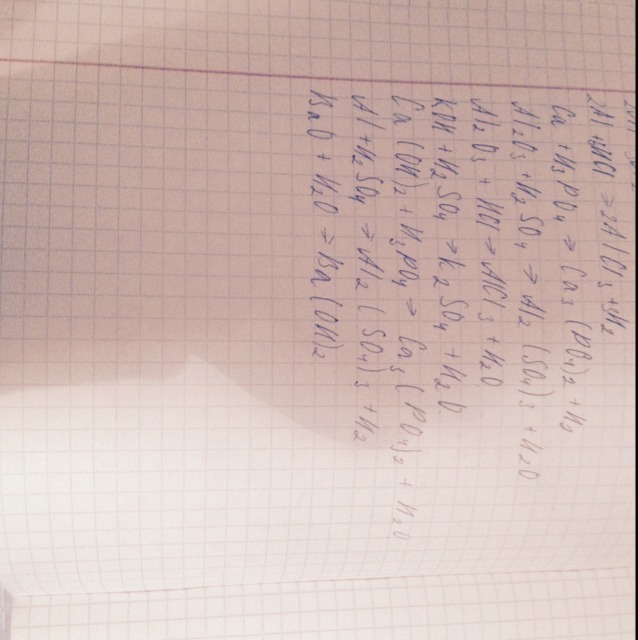 2Al + HCl → 2AlCl3 + H2
Ca + H3PO4 → Ca3(PO4)2 + H2
Al2O3 + H2SO4 → Al2(SO4)3 + H2O
Al2O3 + HCl → AlCl3 + H2O
KOH + H2SO4 → K2SO4 + H2O
Ca(OH)2 + H3PO4 → Ca3(PO4)2 + H2O
Al + H2SO4 → Al2(SO4)3 + H2
BaO + H2O → Ba(OH)2